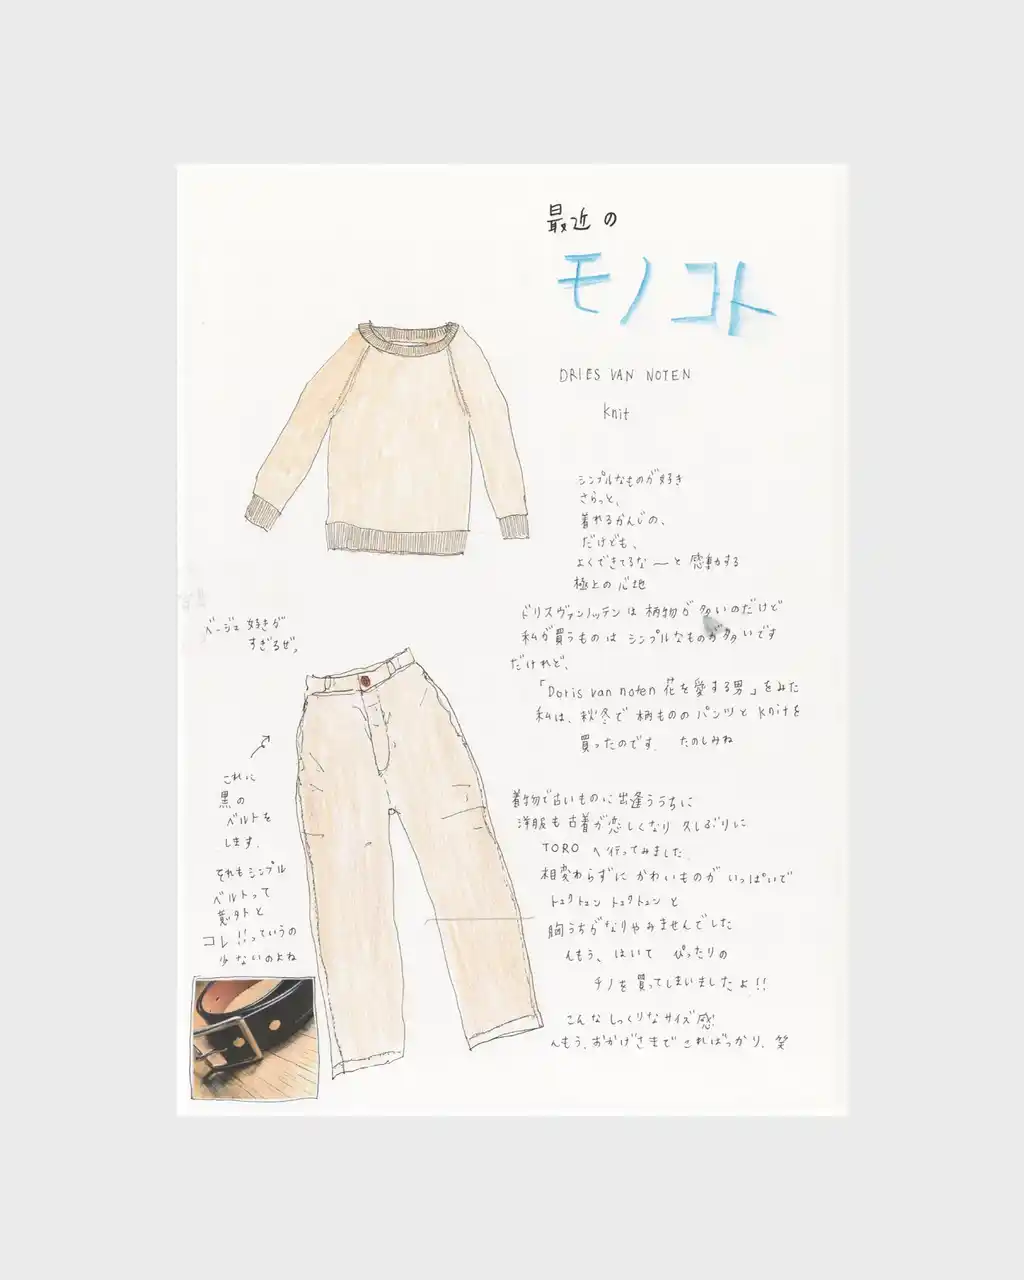 最近の
モノコト
DRIES VAN NOTEN
knit
シンプルなものが好き
さらっと、
着れるかんじの、
だけども、
よくできてるな〜と感動する
極上の心地
ドリスヴァンノッテンは柄物が多いのだけど
私が買うものはシンプルなものが多いです
だけれど、
「Doris van noten 花を愛する男」をみた
私は、秋冬で柄もののパンツとknitを
買ったのです。 たのしみね
ベージュ好きが
すぎるぜ。
これに
黒の
ベルトを
します。
それもシンプル
ベルトって
意外と
コレ!!っていうの
少ないのよね
着物で古いものに出逢ううちに
洋服も古着が恋しくなり 久しぶりに
TOROへ行ってみました。
相変わらずにかわいものがいっぱいで
トュクトュン トュクトュンと
胸うちがなりやみませんでした
んもう、はいて ぴったりの
チノを買ってしまいましたよ!!
こんなしっくりなサイズ感
んもう、おかげさまでこればっかり、笑